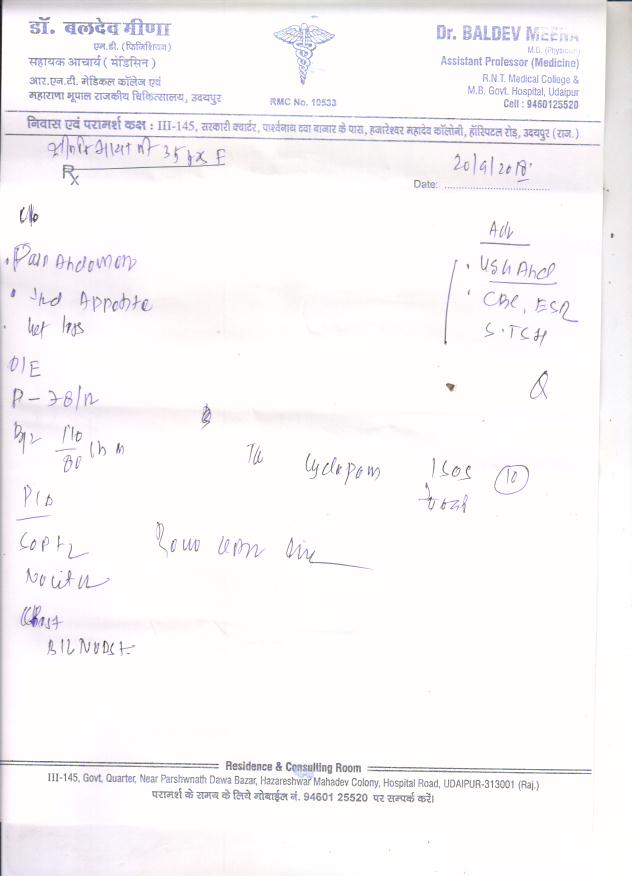 डॉ. बलदेव मीणा
एम.डी. (फिजिशियन)
सहायक आचार्य ( मेडिसिन )
आर.एन.टी. मेडिकल कॉलेज एवं
महाराणा भूपाल राजकीय चिकित्सालय, उदयपुर
RMC No. 10533
Dr. BALDEV MEENA
M.D. (Physician)
Assistant Professor (Medicine)
R.N.T. Medical College &
M.B. Govt. Hospital, Udaipur
Cell : 9460125520
निवास एवं परामर्श कक्ष : III-145, सरकारी क्वार्टर, पार्श्वनाथ दवा बाजार के पास, हजारेश्वर महादेव कॉलोनी, हॉस्पिटल रोड़, उदयपुर (राज.)
F
Rx
Date: 20/9/2018
C/o
Pain Abdomen
Appetite
loss
O/E
P - 78/
110
80
P/A
Soft
Chest
Adv
USG Abd
CBC, ESR
S. TSH
Cyclopam
10
Residence & Consulting Room
III-145, Govt, Quarter, Near Parshwnath Dawa Bazar, Hazareshwar Mahadev Colony, Hospital Road, UDAIPUR-313001 (Raj.)
परामर्श के समय के लिये मोबाईल नं. 94601 25520 पर सम्पर्क करें।